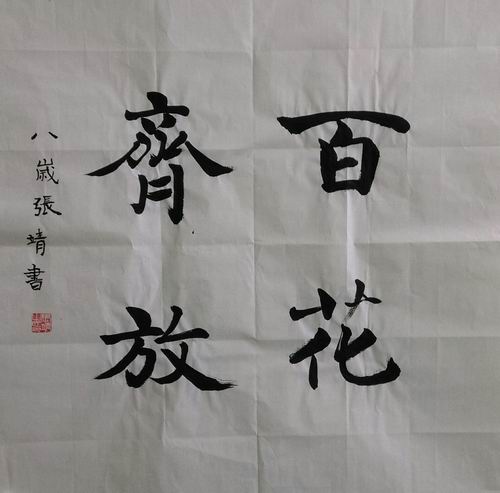 百花
齊放
八歲張靖書